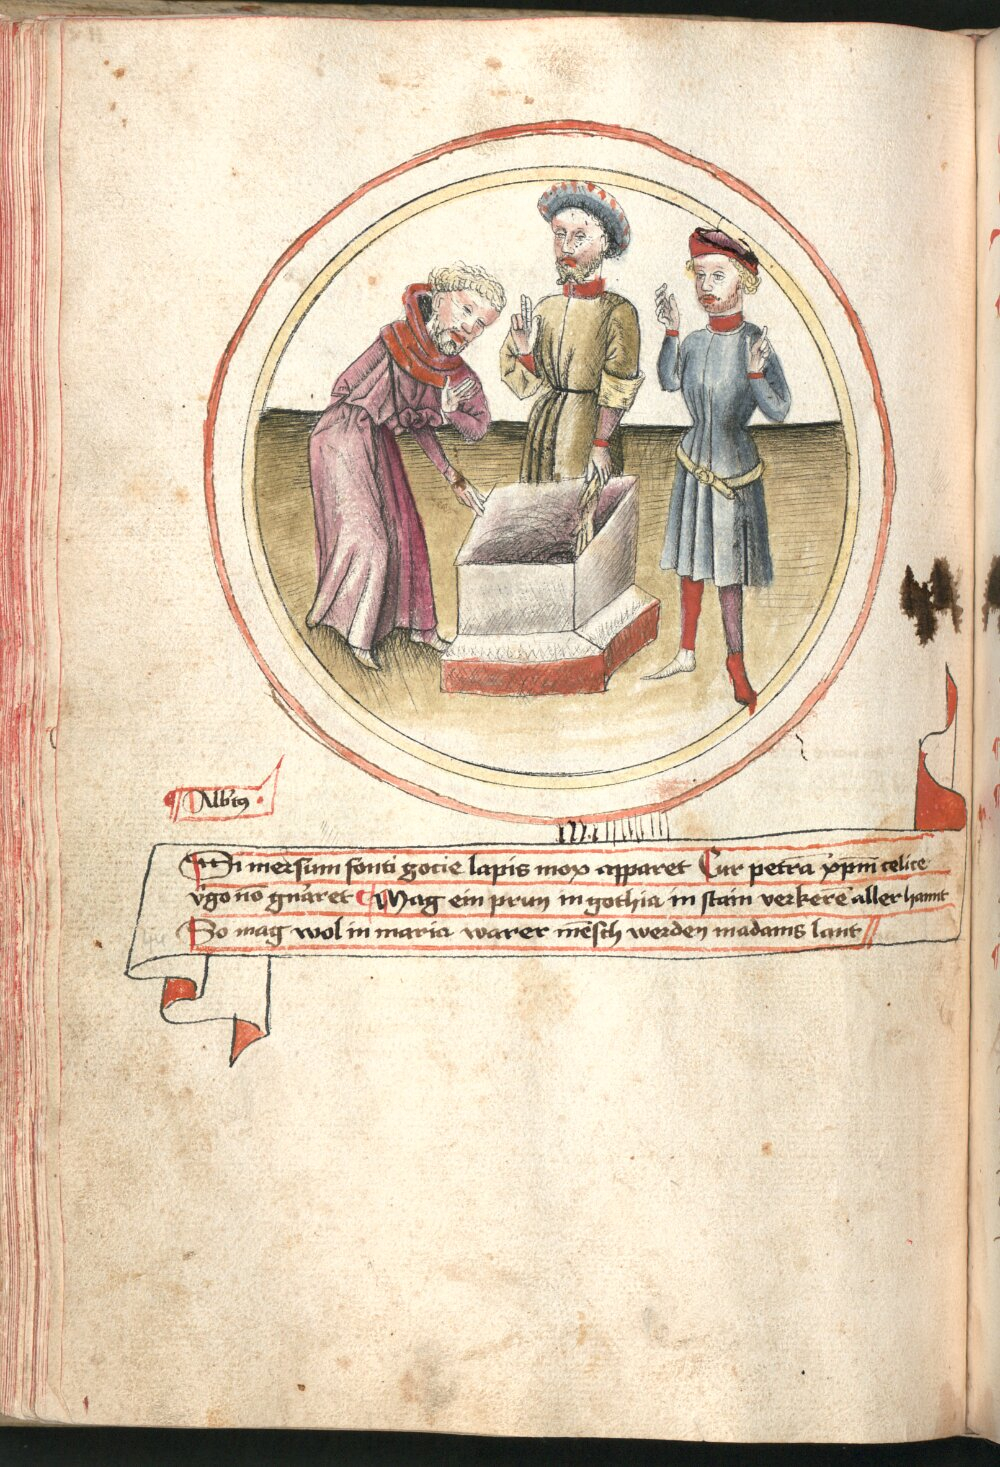 Alb'tꝰ
In mersum fonti gocie lapis mox apparet Cur petra xp̄m celice
v'go nō gn̄aret Mag ein prun in gothia in stain verkerē aller hannt
So mag wol in maria warer mēsch werden madams lant